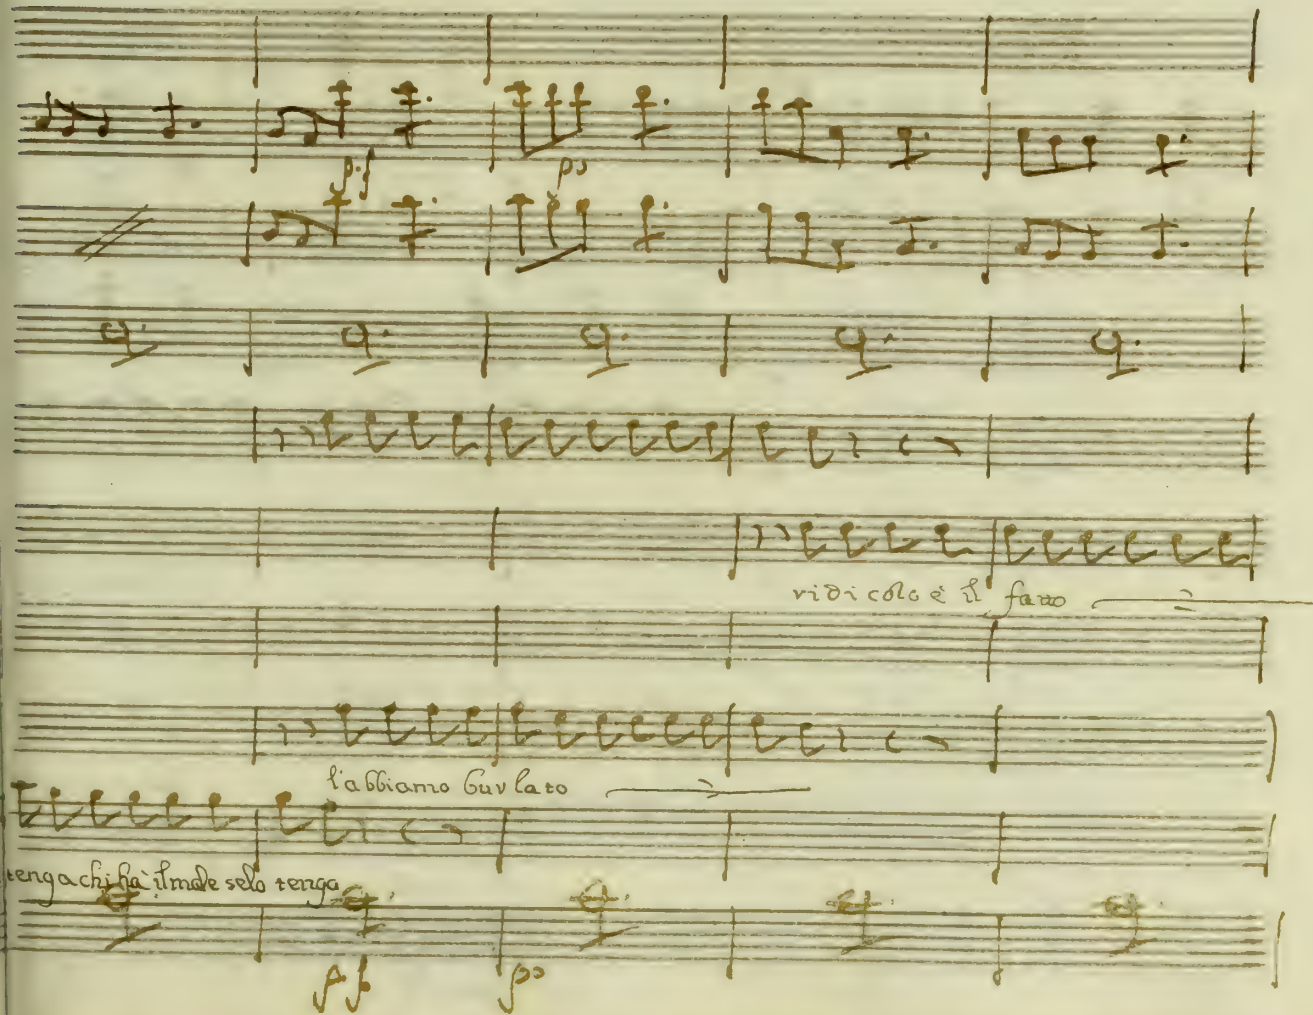 p.f po
ridicolo è il fatto
l'abbiamo burlato
tenga chi hà il male selo tenga
p f po